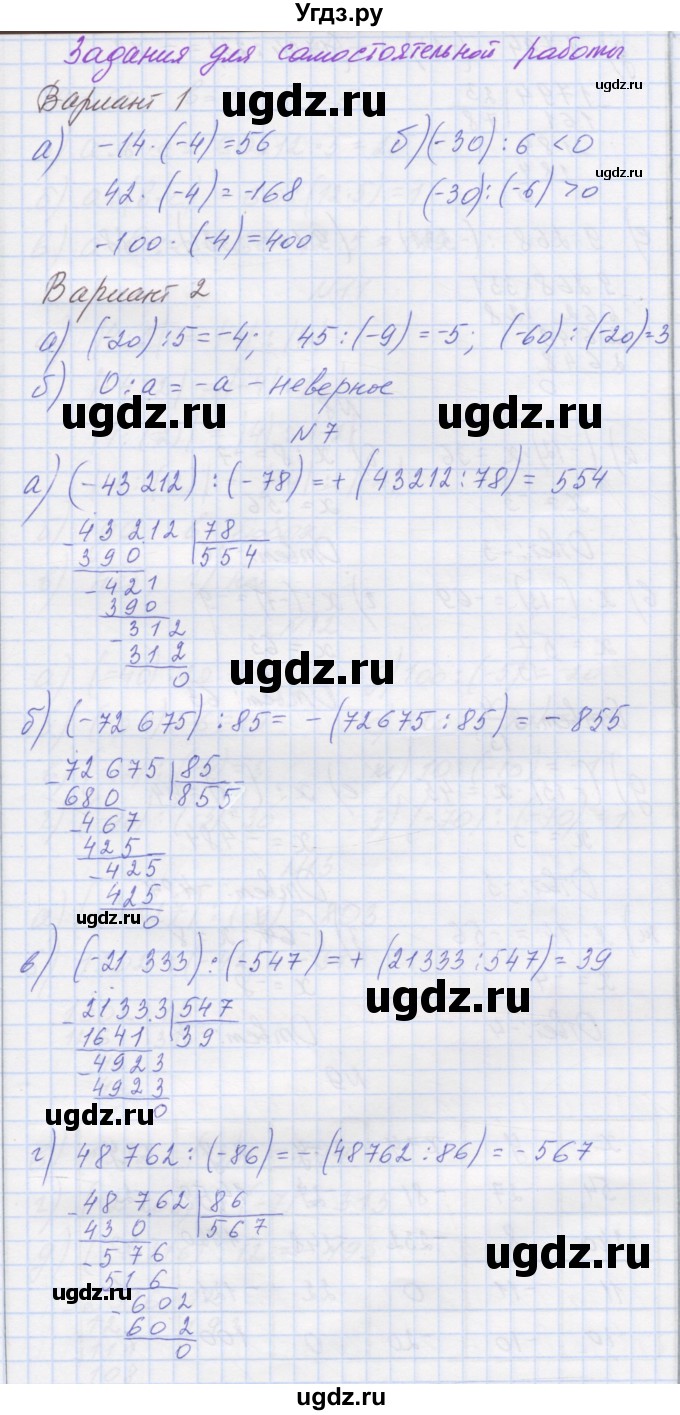 Угдз.ру
Задания для самостоятельной работы
Вариант 1
ugdz.ru
ugdz.ru
а) -14·(-4)=56 б)(-30):6<0
42·(-4)=-168 (-30):(-6)>0
ugdz.ru
-100·(-4)=400
Вариант 2
а) (-20):5=-4; 45:(-9)=-5; (-60):(-20)=3
б) 0:а=-а - неверное
ugdz.ru ugdz.ru
N7
а) (-43 212):(-78)=+(43212:78)= 554
-43 212 78
390 554
-421
390
-312
312
0
ugdz.ru
б) (-72 675):85= -(72675:85)=-855
-72 675 85
680 855
-467
425
-425
425
0
ugdz.ru
в) (-21 333):(-547)=+(21333:547)=39
ugdz.ru
-21333 547
1641 39
-4923
4923
0
ugdz.ru
г) 48 762:(-86)=-(48762:86)=-567
-48 762 86
430 567
-576
516
ugdz.ru
ugdz.ru
-602
602
0
ugdz.ru